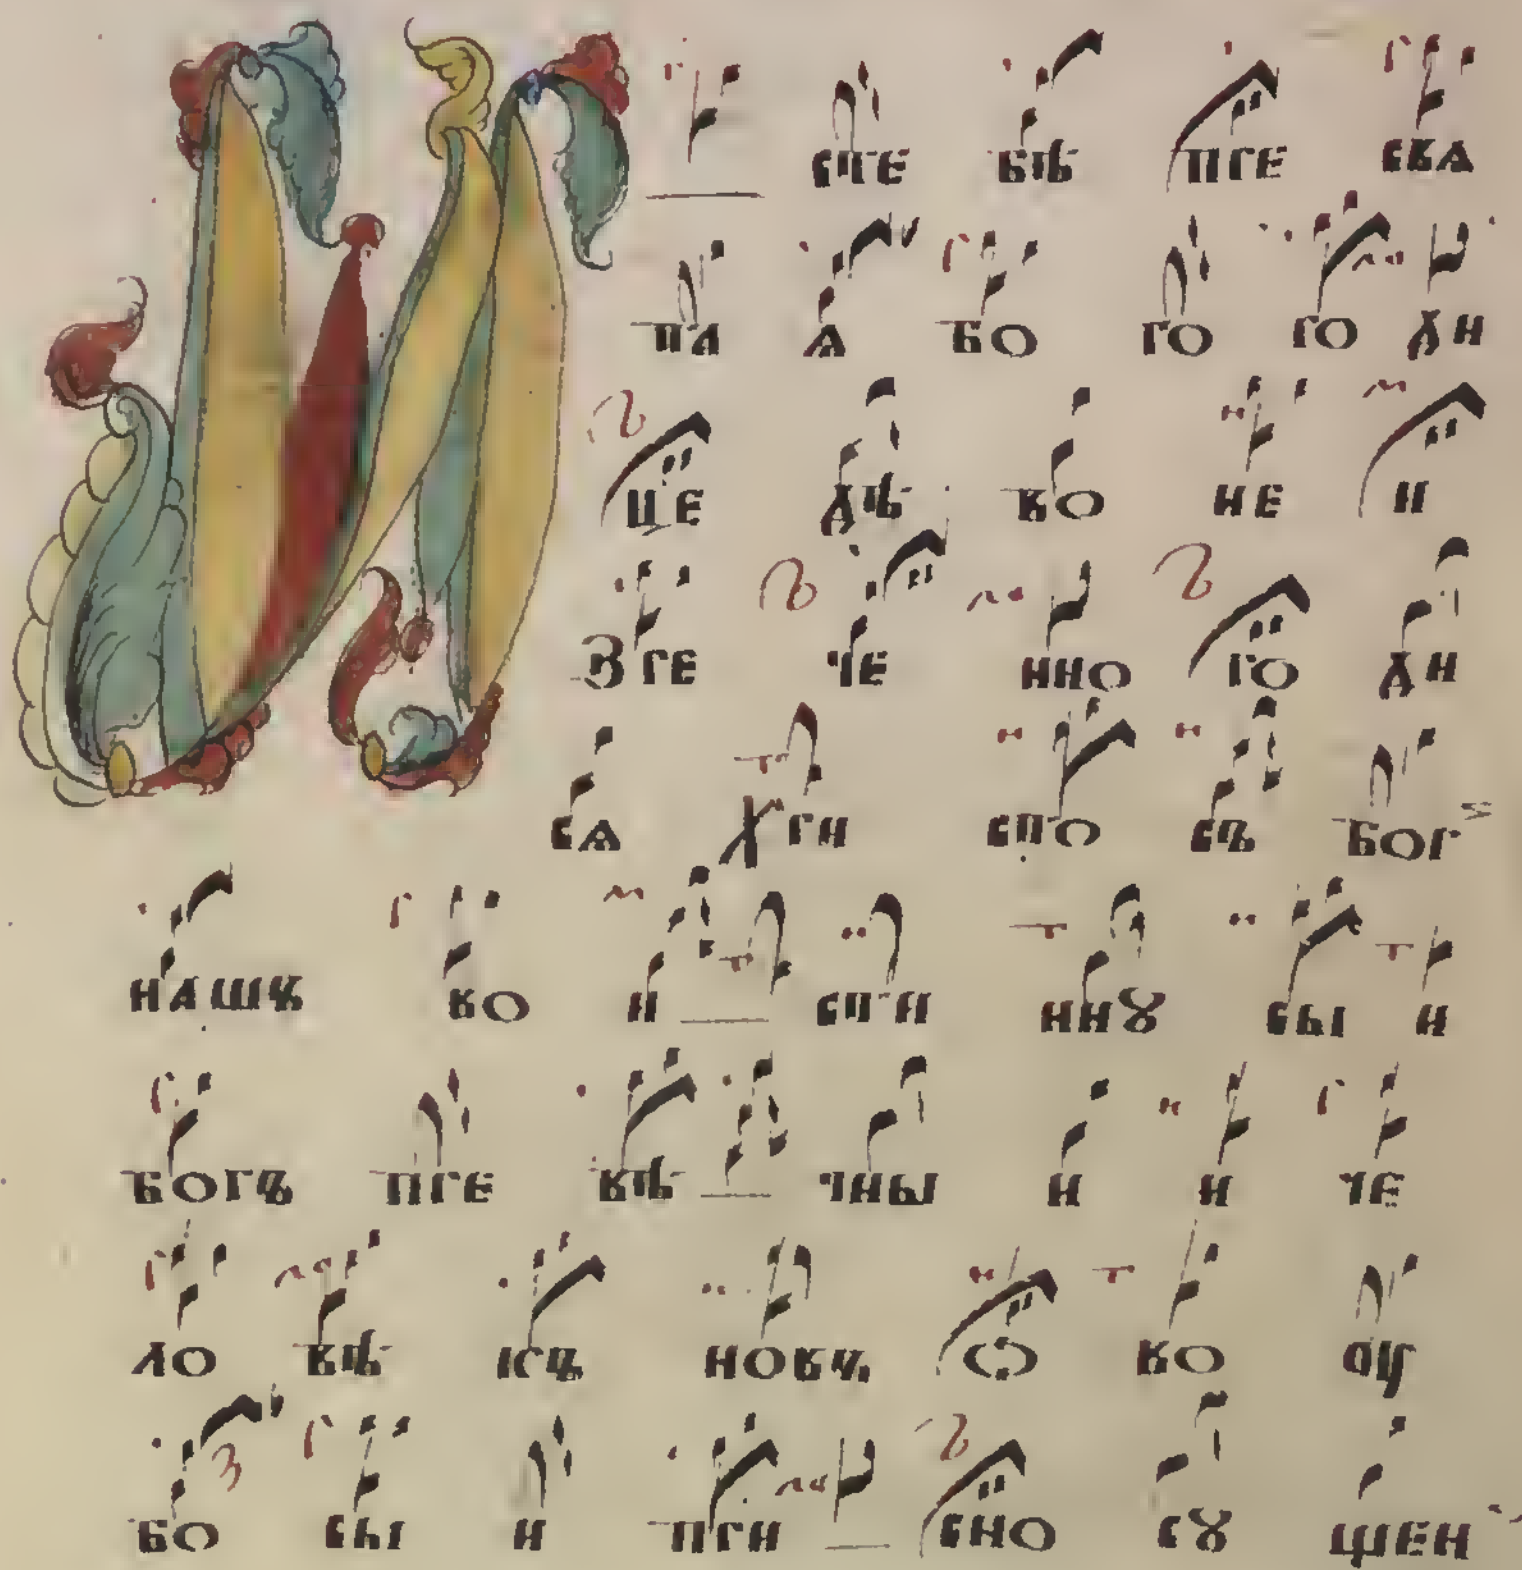 И сте бѣ пре свѧ
та ѧ бо го ро ди
це дѣ во не и
зре че нно ро ди
сѧ хри сто съ богъ
нашъ во и сти ннꙋ сы и
богъ пре вѣ чны и и че
ло вѣ къ новъ ѡ во оу
бо сы и при сно сꙋ щен